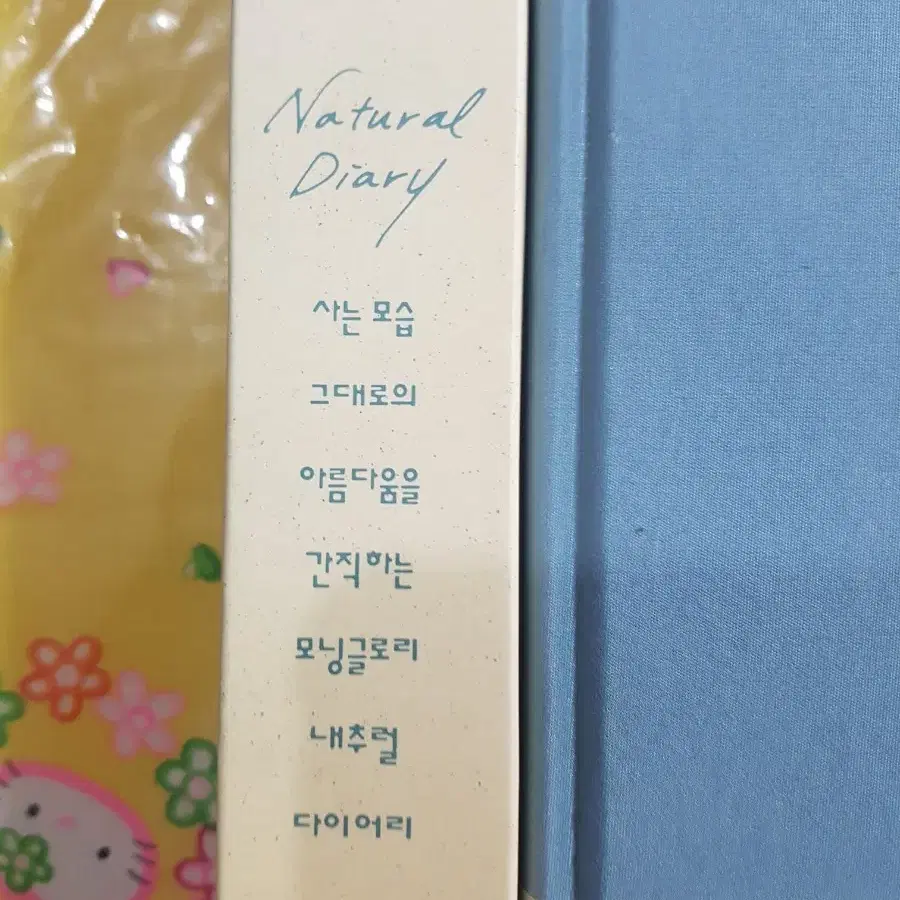 Natural
Diary
사는 모습
그대로의
아름다움을
간직하는
모닝글로리
내추럴
다이어리